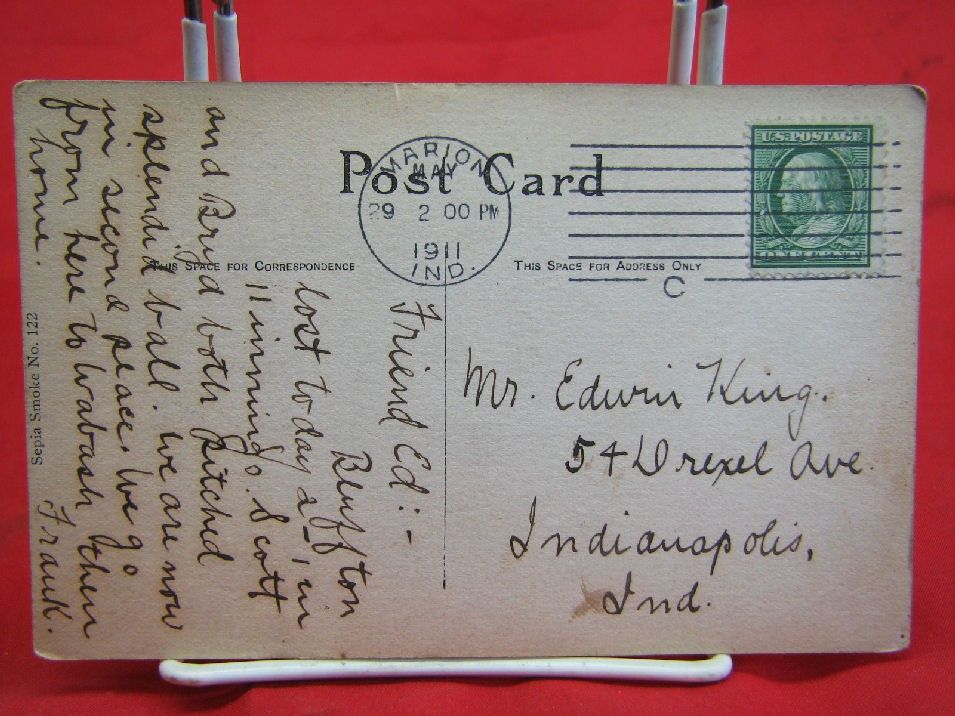 Post Card
MARION
MAY
29 2 00 PM
1911
IND.
U.S. POSTAGE
THIS SPACE FOR CORRESPONDENCE
THIS SPACE FOR ADDRESS ONLY
C
Friend Ed:-
Bluffton
lost today 2-1 in
11 innings. Scott
and Bryd both pitched
splendid ball. We are now
in second place. We go
from here to Wabash then
home. Frank.
Mr. Edwin King.
54 Drexel Ave.
Indianapolis,
Ind.
Sepia Smoke No. 122